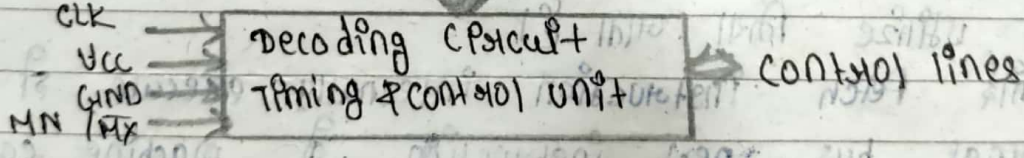 CLK
VCC
GND
MN/M̅X̅
Decoding Circuit
Timing & control unit
control lines